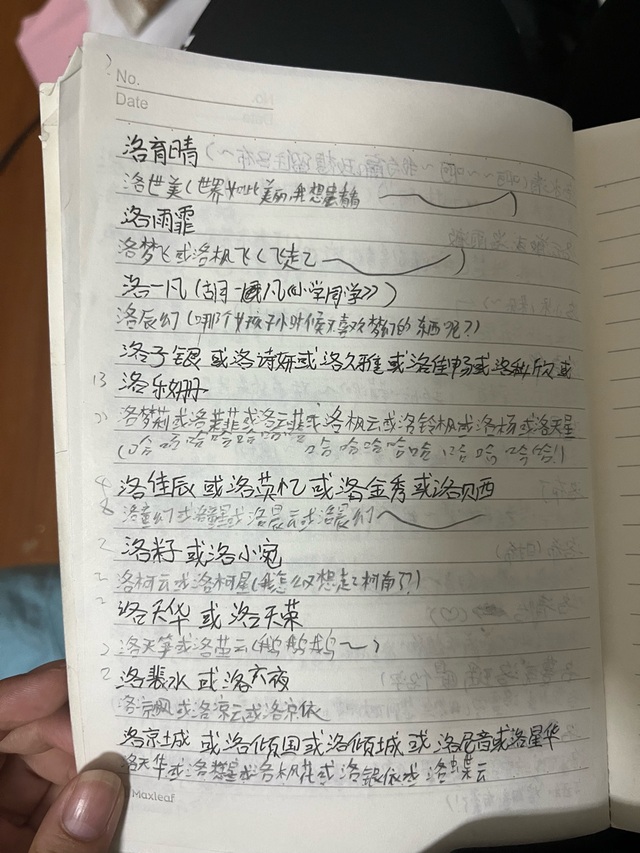 No.
Date
洛育晴
洛世美(世界如此美丽,我想
洛雨霏
洛梦飞或洛机飞(飞走了
洛一凡(胡一凡《小学同学》)
洛辰幻(哪个女孩子小时候不喜欢梦幻的东西呢?)
洛子银或洛诗妍或洛久雅或洛佳畅或洛秋欣或
13 洛乐姗
洛梦莉或洛菲菲或洛云菲或洛机云或洛铃机或洛扬或洛天星
(哈哈哈哈哈哈哈哈哈哈哈哈哈哈哈哈!)
4 洛佳辰或洛英忆或洛金秀或洛贝西
洛童幻或洛瞳星或洛晨云或洛晨幻
2 洛籽或洛小宛
2 洛柯云或洛柯星(我怎么又想走了柯南了?)
2 洛天华或洛天荣
2 洛天第或洛茁云(鹅鹅鹅~)
2 洛裴水或洛六夜
洛京飘或洛京云或洛京依
洛京城或洛倾国或洛倾城或洛尼音或洛星华
洛天华或洛梦星或洛机花或洛银依或洛蝶云
Maxleaf